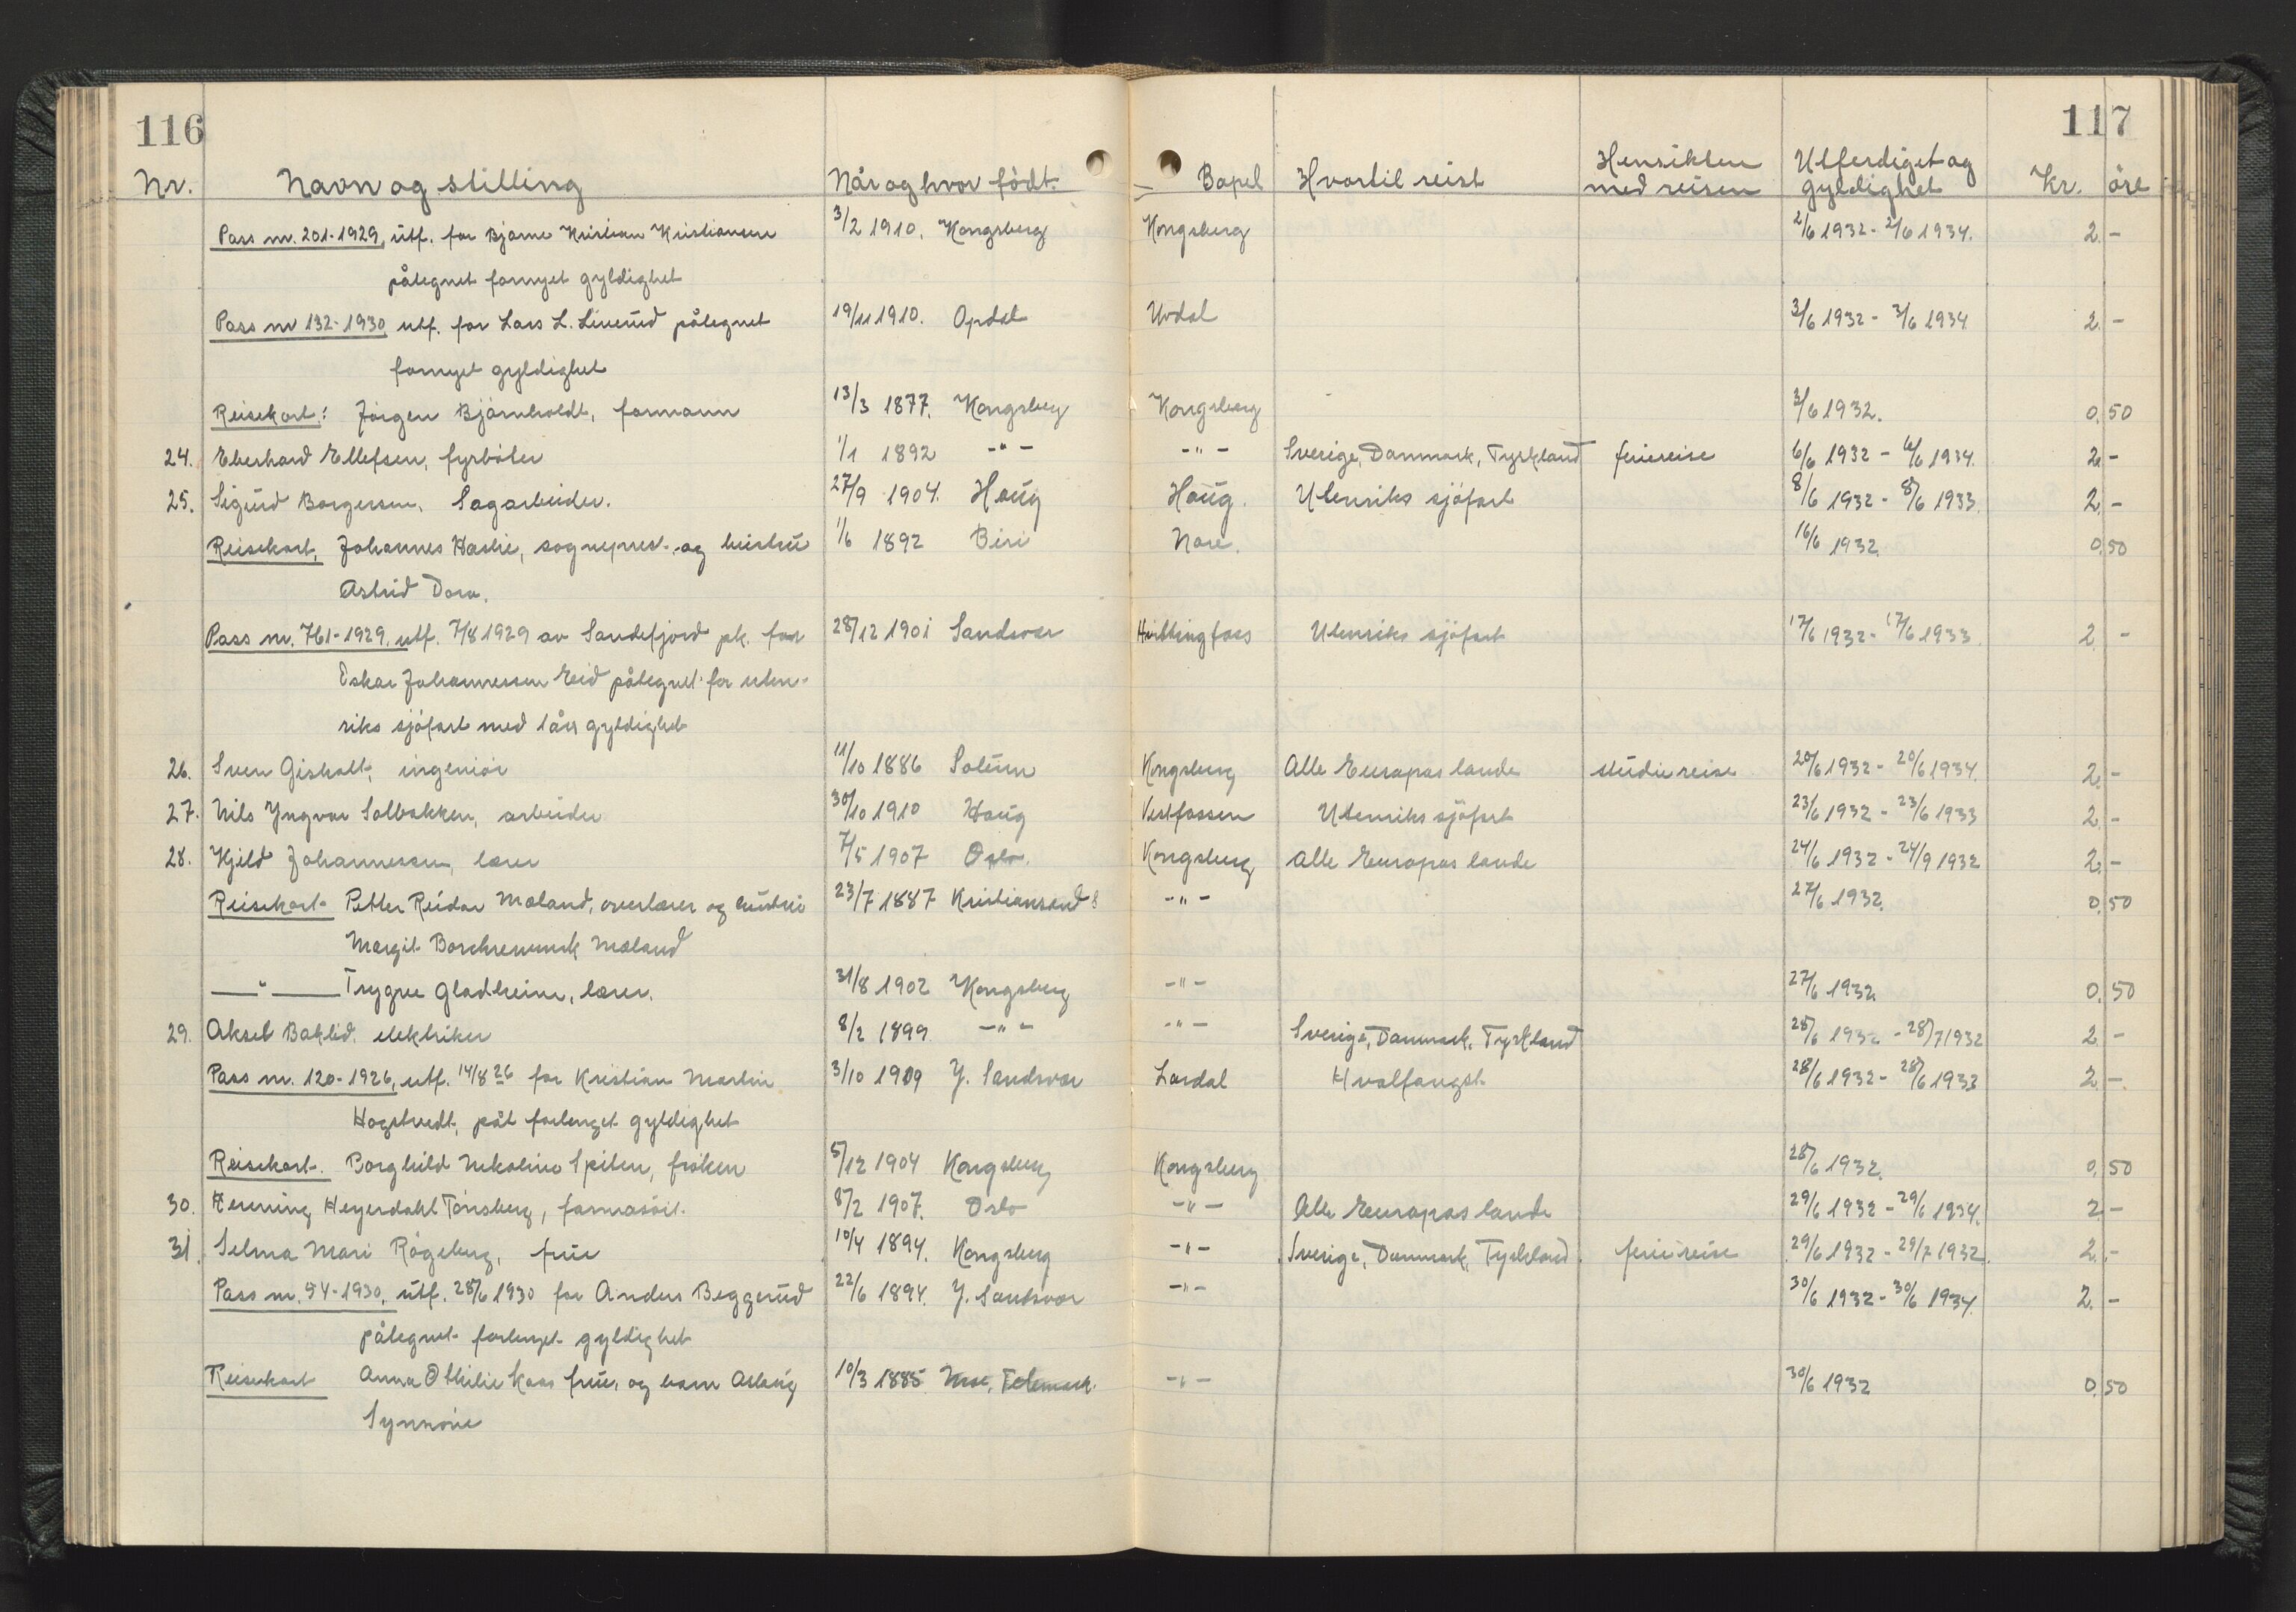 116 117
Nr. Navn og stilling Når og hvor födt. Bopel Hvortil reist Hensikten med reisen Utferdiget og gyldighet Kr. öre
Pass nr. 201-1929, utf. for Bjarne Kristian Kristiansen 3/2 1910. Kongsberg Kongsberg 2/6 1932 - 2/6 1934. 2. -
påtegnet fornyet gyldighet
Pass nr 132-1930 utf. for Lars L. Liverud påtegnet 19/11 1910. Opdal Uvdal 3/6 1932 - 3/6 1934 2. -
fornyet gyldighet
Reisekort: Jörgen Björnholdt, formann 13/3 1877. Kongsberg Kongsberg 3/6 1932. 0. 50
24. Eberhard Ellefsen, fyrböter 1/1 1892 -"- -"- Sverige, Danmark, Tyskland feriereise 6/6 1932 - 6/6 1934. 2. -
25. Sigurd Borgersen, Sagarbeider. 27/9 1904. Haug Haug. Utenriks sjöfart 8/6 1932 - 8/6 1933. 2. -
Reisekort, Johannes Haslie, sogneprest og hustru 1/6 1892 Biri Nore. 16/6 1932. 0. 50
Astrid Dora.
Pass nr. 761-1929, utf. 7/8 1929 av Sandefjord pk. for 28/12 1901 Sandsvær Hvittingfoss Utenriks sjöfart 17/6 1932 - 17/6 1933. 2 -
Oskar Johannessen Eid påtegnet for uten-
riks sjöfart med 1 års gyldighet
26. Sven Gisholt, ingeniör 11/10 1886 Solum Kongsberg Alle Europas lande studiereise 20/6 1932 - 20/6 1934. 2. -
27. Nils Yngvar Solbakken, arbeider 30/10 1910 Haug Vestfossen Utenriks sjöfart 23/6 1932 - 23/6 1933 2. -
28. Kjeld Johannessen, lærer 7/5 1907 Oslo. Kongsberg Alle Europas lande 24/6 1932 - 24/9 1932 2. -
Reisekort- Petter Reidar Mæland, overlærer og hustru 23/7 1887 Kristiansand S -"- 27/6 1932. 0. 50
Margit Borchrevinck Mæland
-"- Trygve Gladheim, lærer. 31/8 1902 Kongsberg -"- 27/6 1932. 0. 50
29. Aksel Baklid. elektriker 8/2 1899 -"- -"- Sverige, Danmark, Tyskland 28/6 1932 - 28/7 1932 2. -
Pass nr. 120-1926, utf. 14/8 26 for Kristian Martin 3/10 1909 Y. Sandsvær Lardal Hvalfangst 28/6 1932 - 28/6 1933 2. -.
Hogstvedt, påt forlenget gyldighet
Reisekort. Borghild Nikoline Spiten, fröken 5/12 1904 Kongsberg Kongsberg 28/6 1932. 0. 50
30. Henning Heyerdahl Tönsberg, farmasöit. 8/2 1907. Oslo -"- Alle Europas lande 29/6 1932 - 29/6 1934. 2 -
31. Selma Mari Rögeberg, frue 10/4 1894. Kongsberg -"- Sverige, Danmark, Tyskland. feriereise 29/6 1932 - 29/7 1932. 2. -
Pass nr. 54-1930, utf. 28/6 1930 for Anders Beggerud 22/6 1894. Y. Sandsvær -"- 30/6 1932 - 30/6 1934. 2. -
påtegnet forlenget gyldighet
Reisekort Anna Othilie Kaas frue, og barn Aslaug 10/3 1885 Telemark. -"- 30/6 1932 0. 50
Synnöve